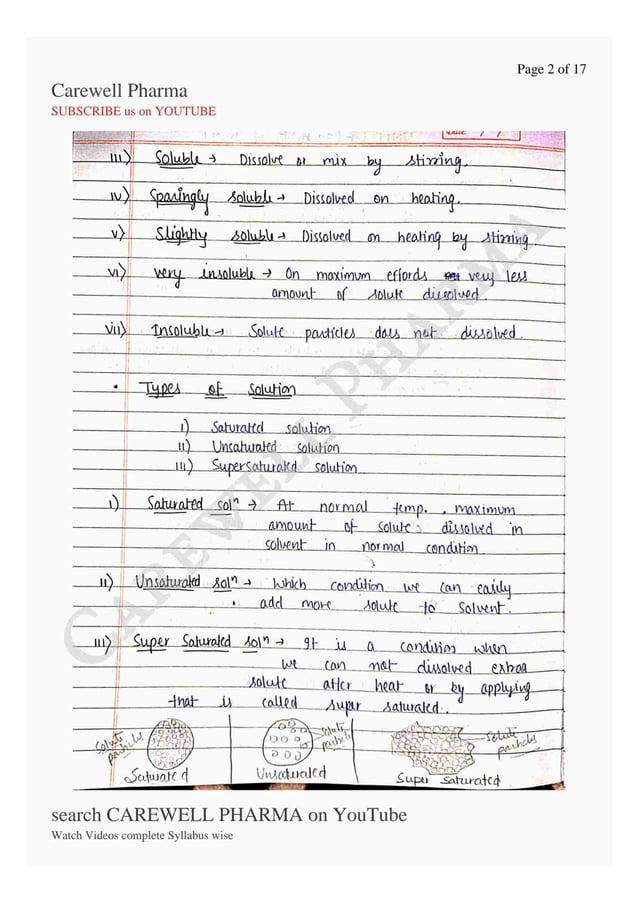 Page 2 of 17
Carewell Pharma
SUBSCRIBE us on YOUTUBE
Date / /
III) Soluble → Dissolve or mix by stirring.
IV) Sparingly soluble → Dissolved on heating.
V) Slightly soluble → Dissolved on heating by stirring
VI) very insoluble → On maximum effords very less
amount of solute dissolved.
VII) Insoluble → Solute particles does not dissolved.
• Types of Solution
I) Saturated solution
II) Unsaturated solution
III) Supersaturated solution
I) Saturated solⁿ → At normal temp., maximum
amount of solute dissolved in
solvent in normal condition
II) Unsaturated solⁿ → Which condition we can easily
add more solute to solvent.
III) Super Saturated solⁿ → It is a condition when
we can not dissolved extraa
solute after heat or by applying
that is called super saturated.
solute
particles
Saturated
solute
particle
Unsaturated
Solute
particles
Super Saturated
CAREWELL PHARMA
search CAREWELL PHARMA on YouTube
Watch Videos complete Syllabus wise